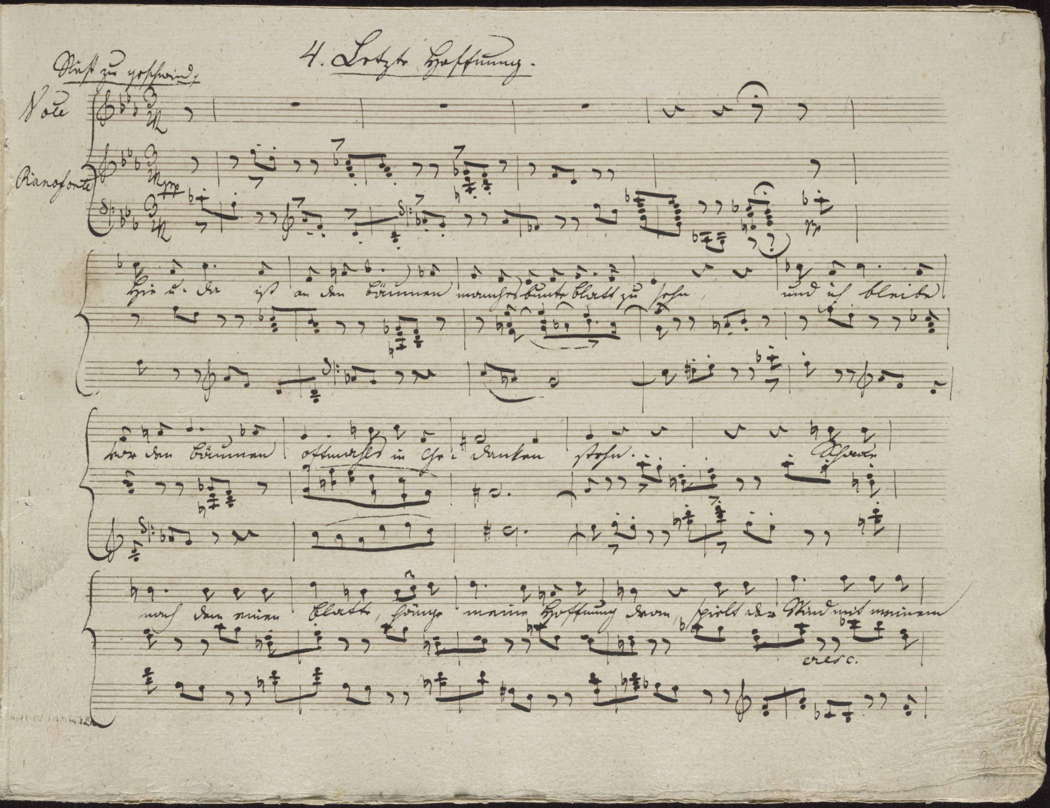 4. Letzte Hoffnung.
Nicht zu geschwind,
Voce
Pianoforte
pp
Hie u. da ist an den bäumen manches bunte blatt zu sehn, und ich bleibe
vor den bäumen oftmahls in Ge: danken stehn. Schaue
nach dem einen blatte, hänge meine Hoffnung dran, spielt der Wind mit meinem
cresc.